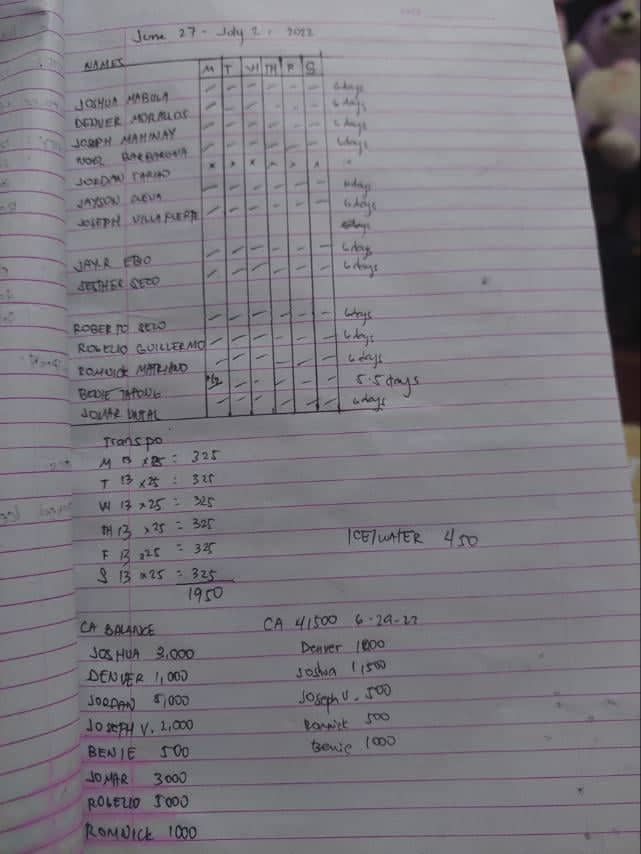 June 27 - July 2, 2022
NAMES M T W TH F S
JOSHUA MABOLA – – – – – – 6 days
DENVER MORALLOS – – – – – – 6 days
JOSEPH MAHINAY – – – – – – 6 days
NOEL BARBARONA – – – – – – 6 days
JORDAN x x x x x x
JAYSON – – – – – – 6 days
JOSEPH VILLAFUERTE – – – – – – 6 days
JAY.R EBIO – – – – – – 6 days
JESTHER SEZO – – – – – – 6 days
ROBERTO SEZO – – – – – – 6 days
ROGELIO GUILLERMO – – – – – – 6 days
ROMNICK – – – – – – 6 days
BENIE 1/2 – – – – – 5.5 days
JOMAR – – – – – – 6 days
Transpo
M 13 x 25 = 325
T 13 x 25 = 325
W 13 x 25 = 325
TH 13 x 25 = 325
F 13 x 25 = 325
S 13 x 25 = 325
1950
ICE/WATER 450
CA BALANCE
JOSHUA 3,000
DENVER 1,000
JORDAN 5,000
JOSEPH V. 2,000
BENIE 500
JOMAR 3000
ROGELIO 5000
ROMNICK 1000
CA 41500 6-29-22
Denver 1000
Joshua 1,500
Joseph V. 500
Romnick 500
Benie 1000